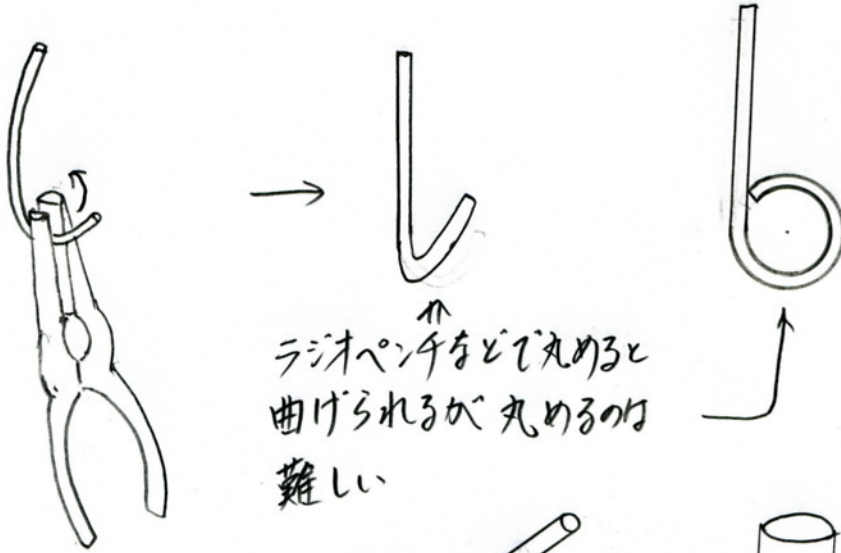 ラジオペンチなどで丸めると
曲げられるが丸めるのは
難しい